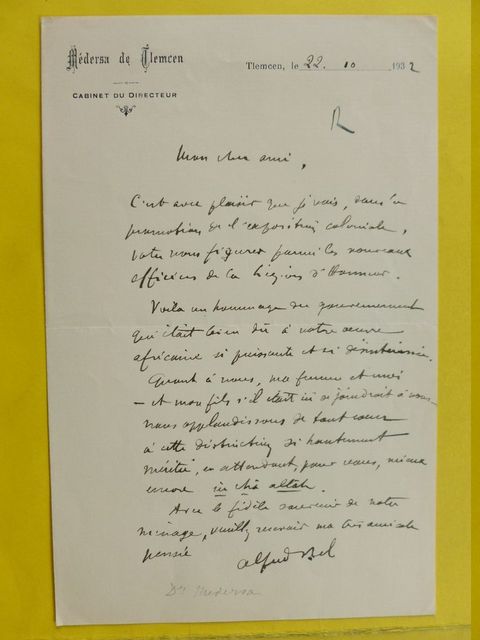 Médersa de Tlemcen
Tlemcen, le 22. 10 1932
CABINET DU DIRECTEUR
R
Mon cher ami,
C'est avec plaisir que je vois, dans la
promotion de l'exposition coloniale,
votre nom figurer parmi les nouveaux
officiers de la Légion d'Honneur.
Voilà un hommage du gouvernement
qui était bien dû à votre œuvre
africaine si puissante et si désintéressée.
Quant à nous, ma femme et moi
— et mon fils s'il était ici se joindrait à nous —
nous applaudissons de tout cœur
à cette distinction si hautement
méritée, en attendant, pour vous, mieux
encore in châ allah.
Avec le fidèle souvenir de notre
ménage, veuillez recevoir ma très amicale
pensée
Alfred Bel
Dr Medersa